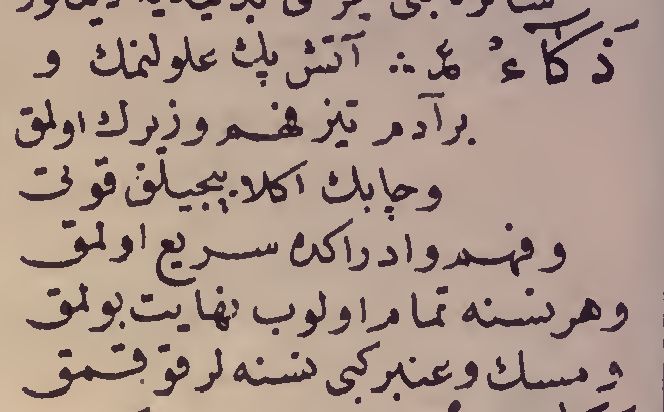 ذكآءٌ عر ∴ آتش پك علولنمك و
برآدم تيز فهم و زيرك اولمق
و چابك اكلاييجيلق قوتى
و فهم و ادراكده سريع اولمق
و هر نسنه تمام اولوب نهايت بولمق
و مسك و عنبر كبى نسنه لر قوقمق